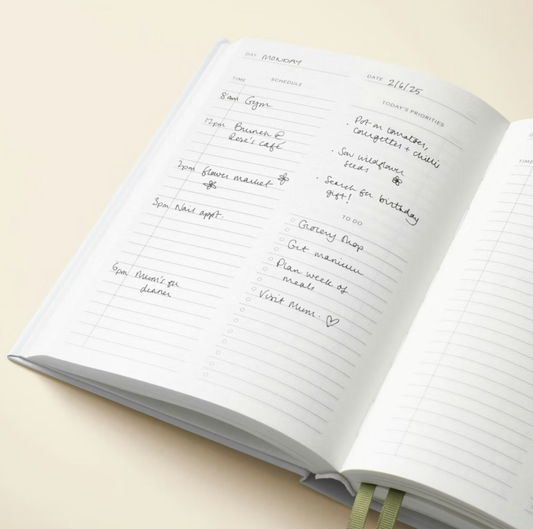 DAY MONDAY
DATE 2/6/25
TIME SCHEDULE
8am Gym
12pm Brunch @
Rose's café
2pm flower market
3pm Nail appt
6pm Mum's for
dinner
TODAY'S PRIORITIES
• Pot on tomatoes,
courgettes + chillis
• Sow wildflower
seeds
• Search for birthday
gift!
TO DO
Grocery shop
Get manicure
Plan week of
meals
Visit Mum.
DAY
TIME